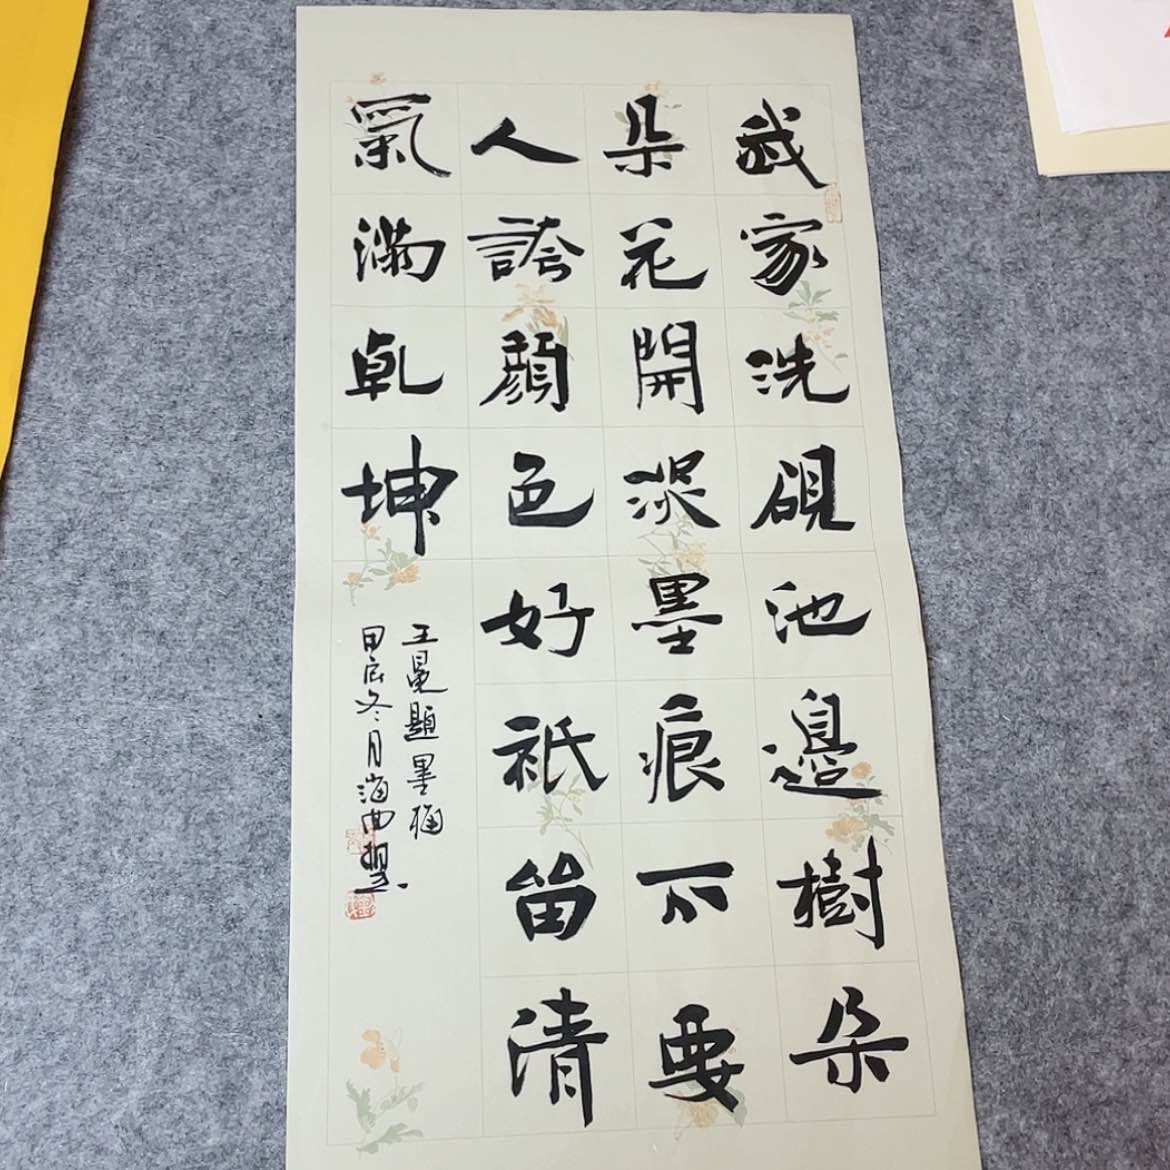 我家洗硯池邊樹朵
朵花開淡墨痕不要
人誇顏色好祇留清
氣滿乾坤
王冕題墨梅
甲辰冬月